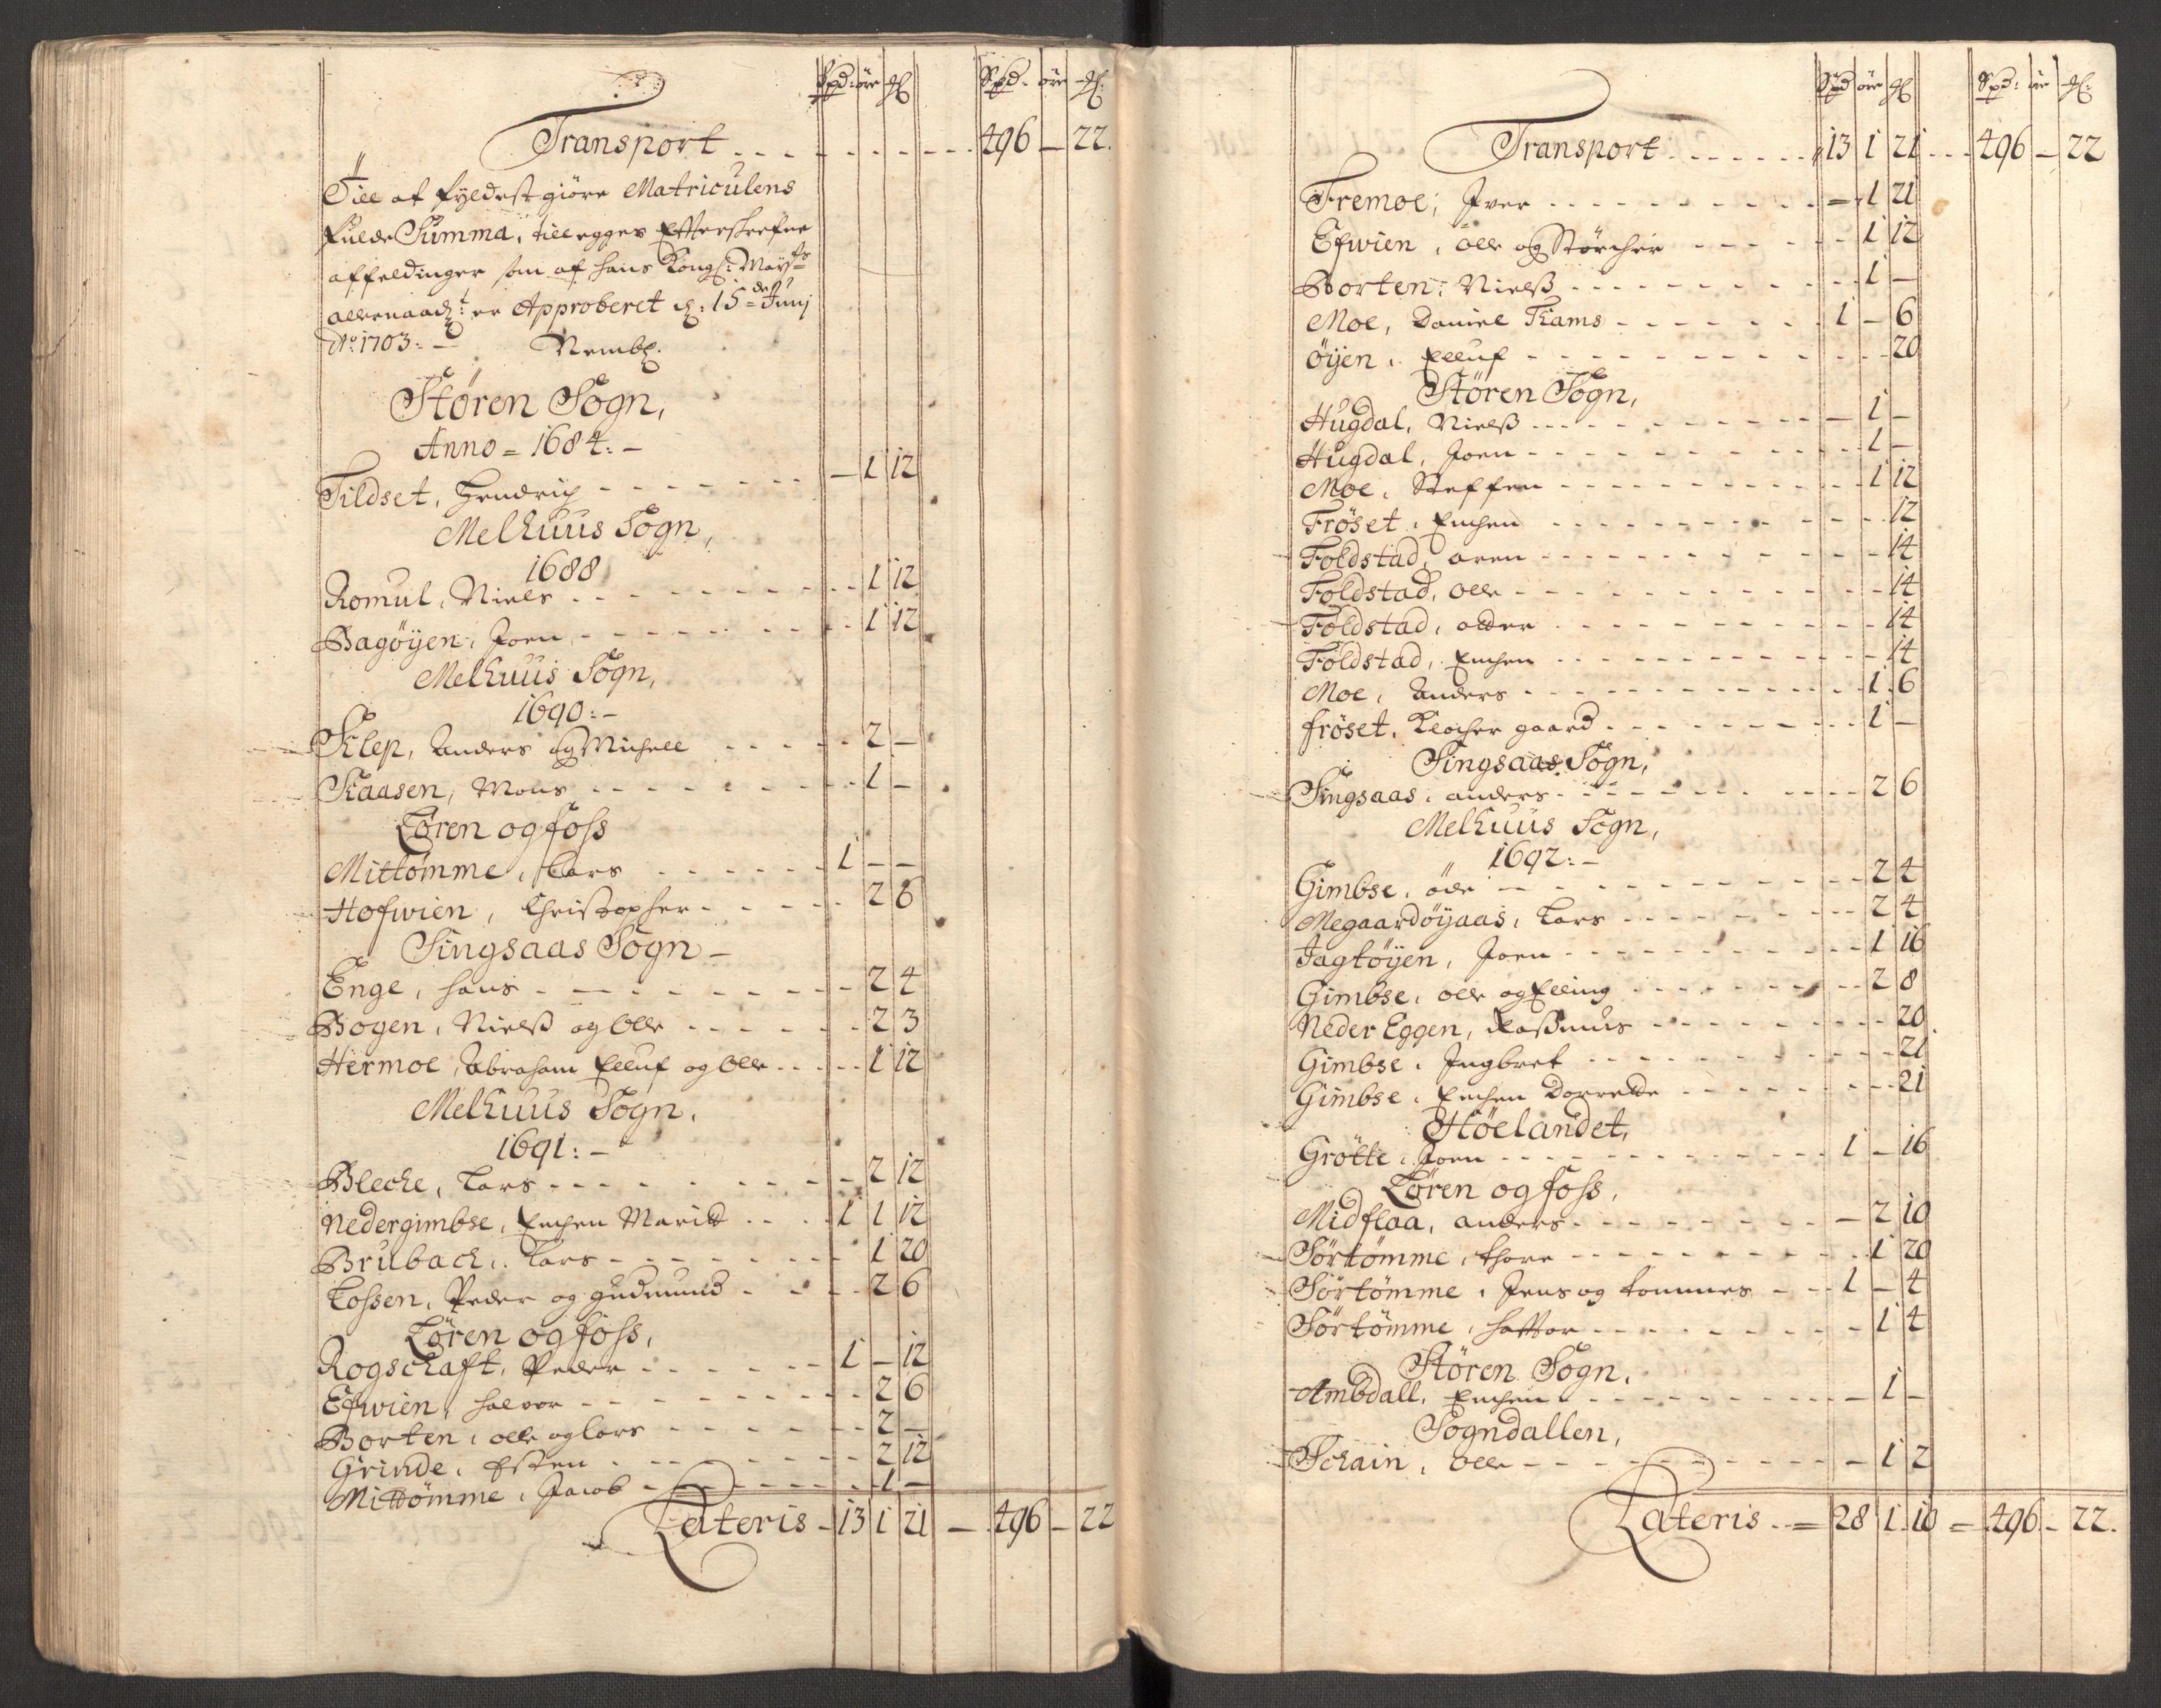 Spd: öre
Spd. öre
Transport - - - - - - - - 496 - 22.
Till at fyldestgiöre Matriculens
fulde Summa, tillegges Efterskrefne
affeldinger som af hans Kongl: Mayts
allernaadt: er Approberet d: 15de Junij
Ao: 1703. - Nembl.
Stören Sogn,
Anno = 1684: -
Fildset, Hendrich - - - - - - - - 1 12
Melhuus Sogn,
1688
Romul, Niels - - - - - - - - 1 12
Bagöyen, Joen - - - - - - - - 1 12
Melhuus Sogn,
1690: -
Klep, Anders og Michell - - - - - 2 -
Kaasen, Mons - - - - - - - - 1 -
Lören og foss
Mittömme, Lars - - - - - - 1 - -
Hofwien, Christopher - - - - - 2 8
Singsaas Sogn -
Enge, hans - - - - - - - - 2 4
Bogen, Nielß og Olle - - - - - - 2 3
Hermoe, Abraham Elluf og Olle - - - - - 1 12
Melhuus Sogn,
1691: -
Bleche, Lars - - - - - - - - 2 12
Nedergimbse, Enchen Maritt - - - - 1 1 12
Brubach, Lars - - - - - - - 1 20
Lossen, Peder og gudmund - - - - 2 6
Lören og foss,
Rogschaft, Peder - - - - - - 1 - 12
Efwien, halvor - - - - - - - - 2 6
Borten, olle og lars - - - - - - - 2 -
Grinde, Esten - - - - - - - - 2 12
Mittömme, Jacob - - - - - - - 1 -
Lateris - 13 1 21 - 496 - 22
Spd öre
Spd: öre
Transport - - - - - - - 13 1 21 - - - 496 - 22
Fremoe, Iver - - - - - - - - - - 1 21
Efwien, olle og Störcher - - - - - - 1 12
Borten, Nielß - - - - - - - - - 1 -
Moe, Daniel Kams - - - - - - - 1 - 6
öyen, Elluf - - - - - - - - - - 20
Stören Sogn,
Hugdal, Nielß - - - - - - - - - - 1 -
Hugdal, Joen - - - - - - - - - - 1 -
Moe, Steffen - - - - - - - - - - 1 12
Fröset, Enchen - - - - - - - - - - 12
Foldstad, aren - - - - - - - - - - 14
Foldstad, olle - - - - - - - - - - 14
Foldstad, - - - - - - - - - - 14
Foldstad, Enchen - - - - - - - - - - 14
Moe, Anders - - - - - - - - - - 1 6
fröset, Klocher gaard - - - - - - - - 1 -
Singsaas Sogn,
Singsaas, anders - - - - - - - - - 2 6
Melhuus Sogn,
1692: -
Gimbse, öde - - - - - - - - - 2 4
Megaardöyaas, Lars - - - - - - - - 2 4
Jagtöyen, Joen - - - - - - - - - 1 16
Gimbse, olle og Elling - - - - - - - 2 8
Neder Eggen, Rasmus - - - - - - - - 20
Gimbse, Ingbret - - - - - - - - - 21
Gimbse, Enchen Dorrette - - - - - - - 21
Höelandet,
Grötte, Joen - - - - - - - - - 1 - 16
Lören og foss,
Midflaa, anders - - - - - - - - 2 10
Sörtömme, thore - - - - - - - - - 1 20
Sörtömme, Jens og tommes - - - 1 - 4
Sörtömme, - - - - - - - - 1 4
Stören Sogn,
Ambdall, Enchen - - - - - - - - - 1 -
Sogndallen,
Schain, Olle - - - - - - - - - 1 2
Lateris - = 28 1 10 = 496 - 22.